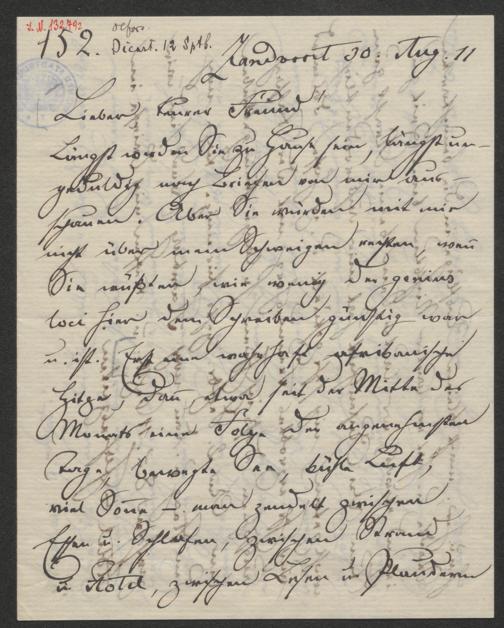 I.N. 132.792
152.
Dicart. 12 Sptb.
Zandvoort 30. Aug. 11
Lieber, teurer Freund!
Längst werden Sie zu Hause sein, längst un-
geduldig nach Briefen von mir aus-
schauen. Aber Sie würden mit mir
nicht über mein Schweigen rechten, wenn
Sie wüßten wie wenig der genius
loci hier dem Schreiben günstig war
u. ist. Erst eine wahrhaft afrikanische
Hitze, dann, etwa seit der Mitte des
Monats eine Folge der angenehmsten
Tage, bewegte See, kühle Luft,
viel Sonne – man pendelt zwischen
Essen u. Schlafen, zwischen Strand
u. Hotel, zwischen Lesen u. Plaudern